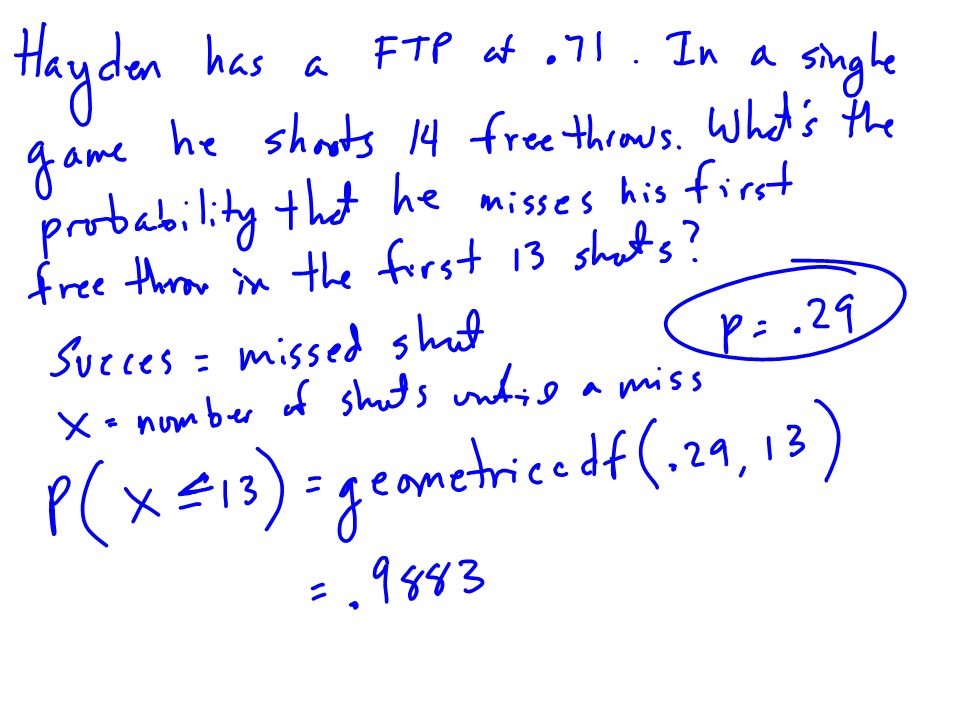 Hayden has a FTP at .71. In a single
game he shoots 14 free throws. What's the
probability that he misses his first
free throw in the first 13 shots?
Succes = missed shot
p = .29
X = number of shots until a miss
P(X ≤ 13) = geometriccdf(.29, 13)
= .9883